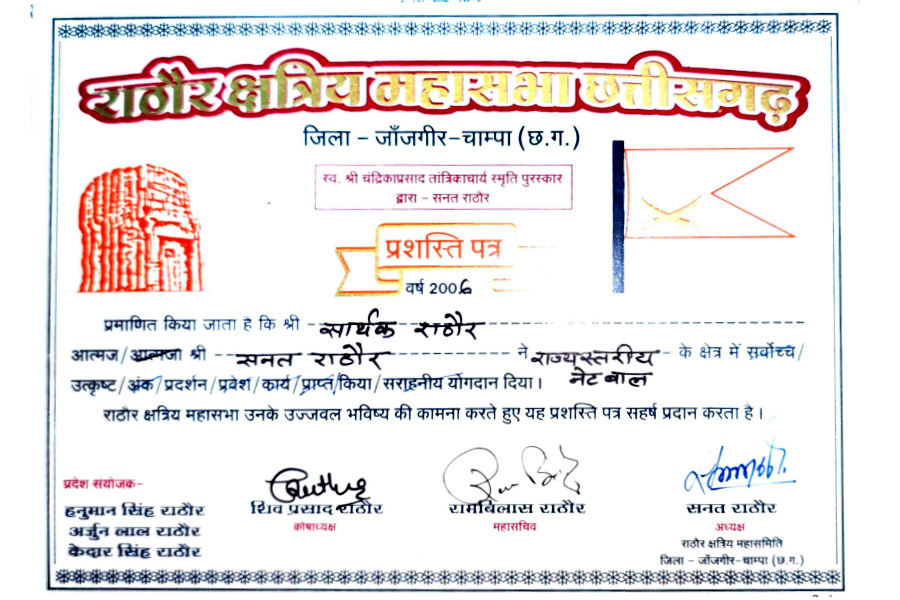 राठौर क्षत्रिय महासभा छत्तीसगढ़
जिला - जाँजगीर-चाम्पा (छ.ग.)
स्व. श्री चंद्रिकाप्रसाद तांत्रिकाचार्य स्मृति पुरस्कार
द्वारा - सनत राठौर
प्रशस्ति पत्र
वर्ष 2006
प्रमाणित किया जाता है कि श्री - सार्थक राठौर
आत्मज/आत्मजा श्री - सनत राठौर - ने राज्यस्तरीय - के क्षेत्र में सर्वोच्च/
उत्कृष्ट/अंक/प्रदर्शन/प्रवेश/कार्य/प्राप्त/किया/सराहनीय योगदान दिया। नेटबाल
राठौर क्षत्रिय महासभा उनके उज्जवल भविष्य की कामना करते हुए यह प्रशस्ति पत्र सहर्ष प्रदान करता है।
प्रदेश सयोजक-
हनुमान सिंह राठौर
अर्जुन लाल राठौर
केदार सिंह राठौर
शिव प्रसाद राठौर
कोषाध्यक्ष
रामबिलास राठौर
महासचिव
सनत राठौर
अध्यक्ष
राठौर क्षत्रिय महासमिति
जिला - जाँजगीर-चाम्पा (छ.ग.)